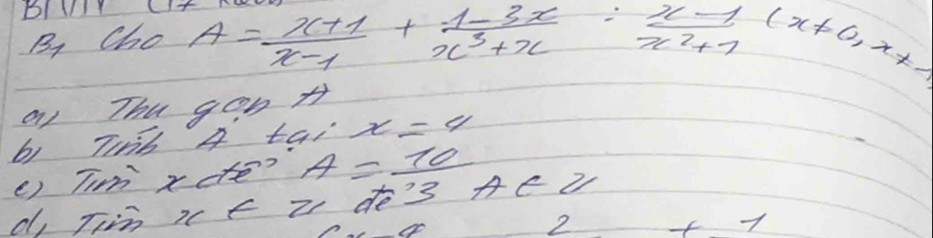 B1 Cho A = \frac{x+1}{x-1} + \frac{1-3x}{x^3+x} : \frac{x-1}{x^2+1} (x≠0, x≠
a) Thu gọn A
b) Tính A tại x = 4
c) Tìm x để A = \frac{10}{3}
d) Tìm x ∈ Z để A ∈ Z
2 + 1